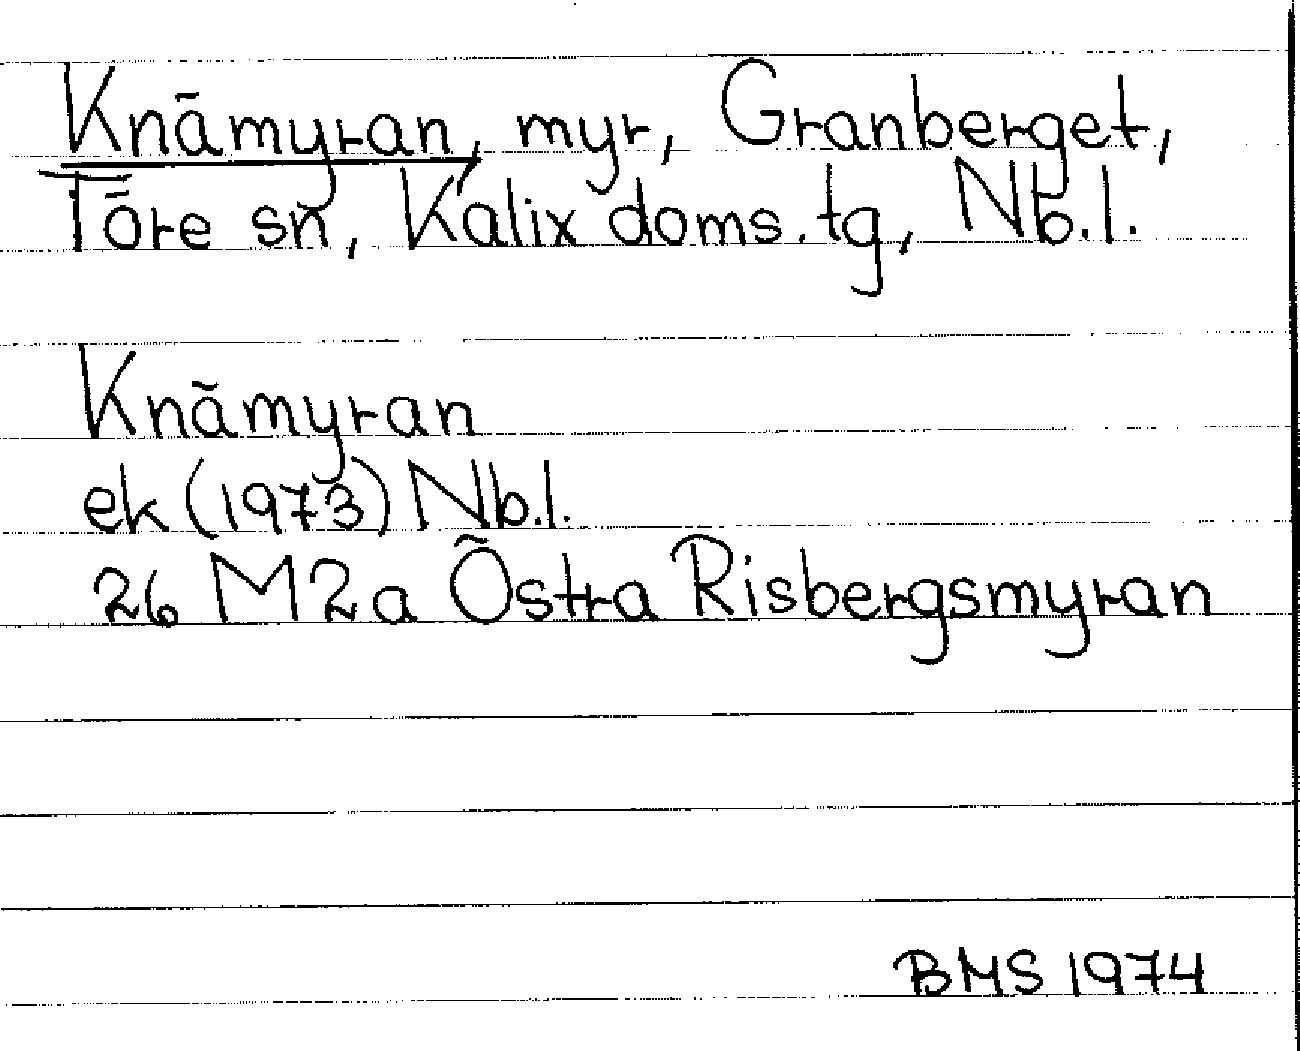 Knämyran, myr, Granberget,
Töre sn, Kalix doms.tg, Nb.l.
Knämyran
ek (1973) Nb.l.
26 M2a Östra Risbergsmyran
BMS 1974